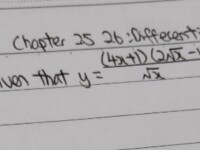 Chapter 25 26: Differenti
ven that y = (4x+1)(2√x -
√x